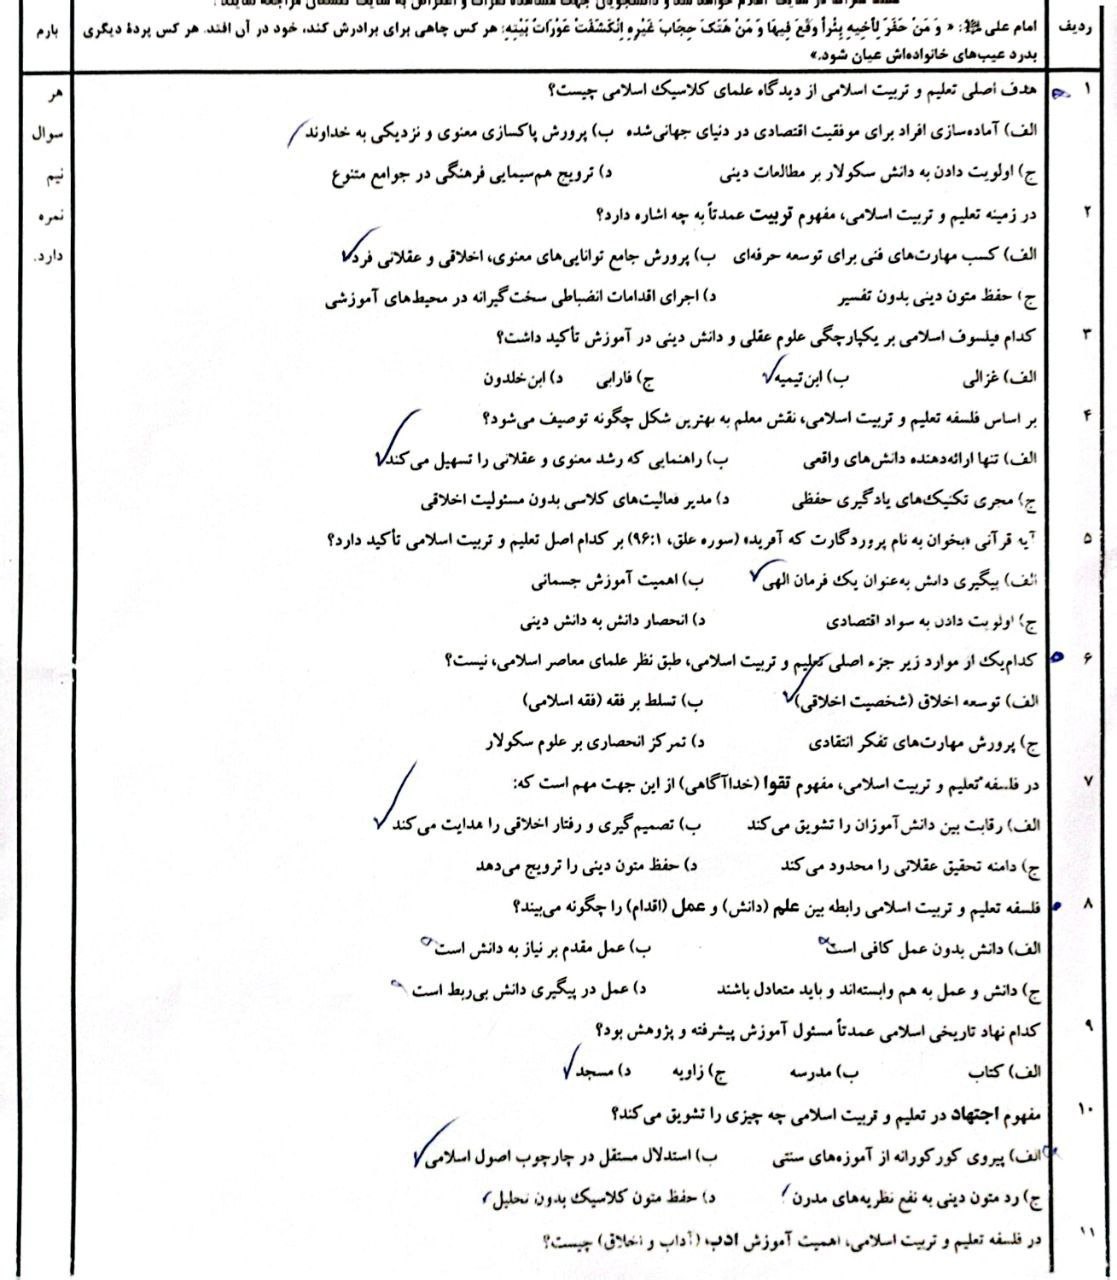 ردیف
امام علی ﷺ: « وَ مَنْ حَفَرَ لِأخیهِ بِئْراً وَقَعَ فِیهَا وَ مَنْ هَتَکَ حِجَابَ غَیْرِهِ اِنْکَشَفَتْ عَوْرَاتُ بَیْتِهِ: هر کس چاهی برای برادرش کند، خود در آن افتد. هر کس پردهٔ دیگری
بدرد عیب‌های خانواده‌اش عیان شود.»
بارم
هر
سوال
نیم
نمره
دارد.
۱ هدف اصلی تعلیم و تربیت اسلامی از دیدگاه علمای کلاسیک اسلامی چیست؟
الف) آماده‌سازی افراد برای موفقیت اقتصادی در دنیای جهانی‌شده ب) پرورش پاکسازی معنوی و نزدیکی به خداوند
ج) اولویت دادن به دانش سکولار بر مطالعات دینی د) ترویج هم‌سیمایی فرهنگی در جوامع متنوع
۲ در زمینه تعلیم و تربیت اسلامی، مفهوم توبیت عمدتاً به چه اشاره دارد؟
الف) کسب مهارت‌های فنی برای توسعه حرفه‌ای ب) پرورش جامع توانایی‌های معنوی، اخلاقی و عقلانی فرد
ج) حفظ متون دینی بدون تفسیر د) اجرای اقدامات انضباطی سخت‌گیرانه در محیط‌های آموزشی
۳ کدام فیلسوف اسلامی بر یکپارچگی علوم عقلی و دانش دینی در آموزش تأکید داشت؟
الف) غزالی ب) ابن‌تیمیه ج) فارابی د) ابن‌خلدون
۴ بر اساس فلسفه تعلیم و تربیت اسلامی، نقش معلم به بهترین شکل چگونه توصیف می‌شود؟
الف) تنها ارائه‌دهنده دانش‌های واقعی ب) راهنمایی که رشد معنوی و عقلانی را تسهیل می‌کند
ج) مجری تکنیک‌های یادگیری حفظی د) مدیر فعالیت‌های کلاسی بدون مسئولیت اخلاقی
۵ آیه قرآنی «بخوان به نام پروردگارت که آفرید» (سوره علق، ۹۶:۱) بر کدام اصل تعلیم و تربیت اسلامی تأکید دارد؟
الف) پیگیری دانش به‌عنوان یک فرمان الهی ب) اهمیت آموزش جسمانی
ج) اولویت دادن به سواد اقتصادی د) انحصار دانش به دانش دینی
۶ کدام‌یک از موارد زیر جزء اصلی تعلیم و تربیت اسلامی، طبق نظر علمای معاصر اسلامی، نیست؟
الف) توسعه اخلاق (شخصیت اخلاقی) ب) تسلط بر فقه (فقه اسلامی)
ج) پرورش مهارت‌های تفکر انتقادی د) تمرکز انحصاری بر علوم سکولار
۷ در فلسفه تعلیم و تربیت اسلامی، مفهوم تقوا (خداآگاهی) از این جهت مهم است که:
الف) رقابت بین دانش‌آموزان را تشویق می‌کند ب) تصمیم‌گیری و رفتار اخلاقی را هدایت می‌کند
ج) دامنه تحقیق عقلانی را محدود می‌کند د) حفظ متون دینی را ترویج می‌دهد
۸ فلسفه تعلیم و تربیت اسلامی رابطه بین علم (دانش) و عمل (اقدام) را چگونه می‌بیند؟
الف) دانش بدون عمل کافی است ب) عمل مقدم بر نیاز به دانش است
ج) دانش و عمل به هم وابسته‌اند و باید متعادل باشند د) عمل در پیگیری دانش بی‌ربط است
۹ کدام نهاد تاریخی اسلامی عمدتاً مسئول آموزش پیشرفته و پژوهش بود؟
الف) کتاب ب) مدرسه ج) زاویه د) مسجد
۱۰ مفهوم اجتهاد در تعلیم و تربیت اسلامی چه چیزی را تشویق می‌کند؟
الف) پیروی کورکورانه از آموزه‌های سنتی ب) استدلال مستقل در چارچوب اصول اسلامی
ج) رد متون دینی به نفع نظریه‌های مدرن د) حفظ متون کلاسیک بدون تحلیل
۱۱ در فلسفه تعلیم و تربیت اسلامی، اهمیت آموزش ادب (آداب و اخلاق) چیست؟